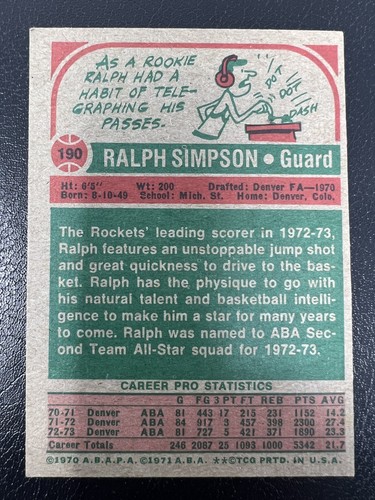 AS A ROOKIE
RALPH HAD A
HABIT OF TELE-
GRAPHING HIS
PASSES.
DOT
DOT
DASH
190
RALPH SIMPSON • Guard
Ht: 6'5" Wt: 200 Drafted: Denver FA—1970
Born: 8-10-49 School: Mich. St. Home: Denver, Colo.
The Rockets' leading scorer in 1972-73,
Ralph features an unstoppable jump shot
and great quickness to drive to the bas-
ket. Ralph has the physique to go with
his natural talent and basketball intelli-
gence to make him a star for many years
to come. Ralph was named to ABA Sec-
ond Team All-Star squad for 1972-73.
CAREER PRO STATISTICS
G FG 3 PT FT REB PTS AVG
70-71 Denver ABA 81 443 17 215 231 1152 14.2
71-72 Denver ABA 84 917 3 457 398 2300 27.4
72-73 Denver ABA 81 727 5 421 371 1890 23.3
Career Totals 246 2087 25 1093 1000 5342 21.7
©1970 A.B.A.P.A. ©1971 A.B.A. **©TCG PRTD. IN U.S.A.